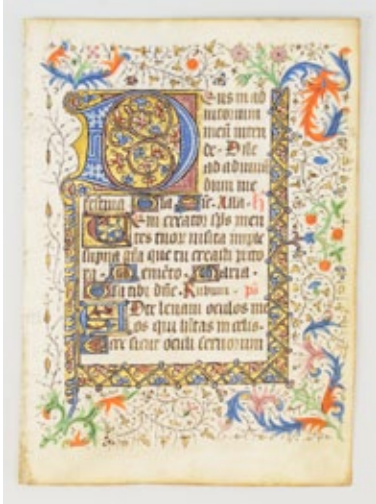 Deus in ad
iutorium
meū inten
de. Dn̄e
ad adiuuā
dum me
festina Glīa Sic. Alla. h
Veni creator sp̄s men
tes tuoꝝ visita imple
superna gr̄a que tu creasti pecto
ra. Memēto. Maria.
Gl̄ia tibi dn̄e. Rubum. ps̄
Ad te leuaui oculos me
os qui h̄itas in celis.
Ecce sicut oculi seruorum